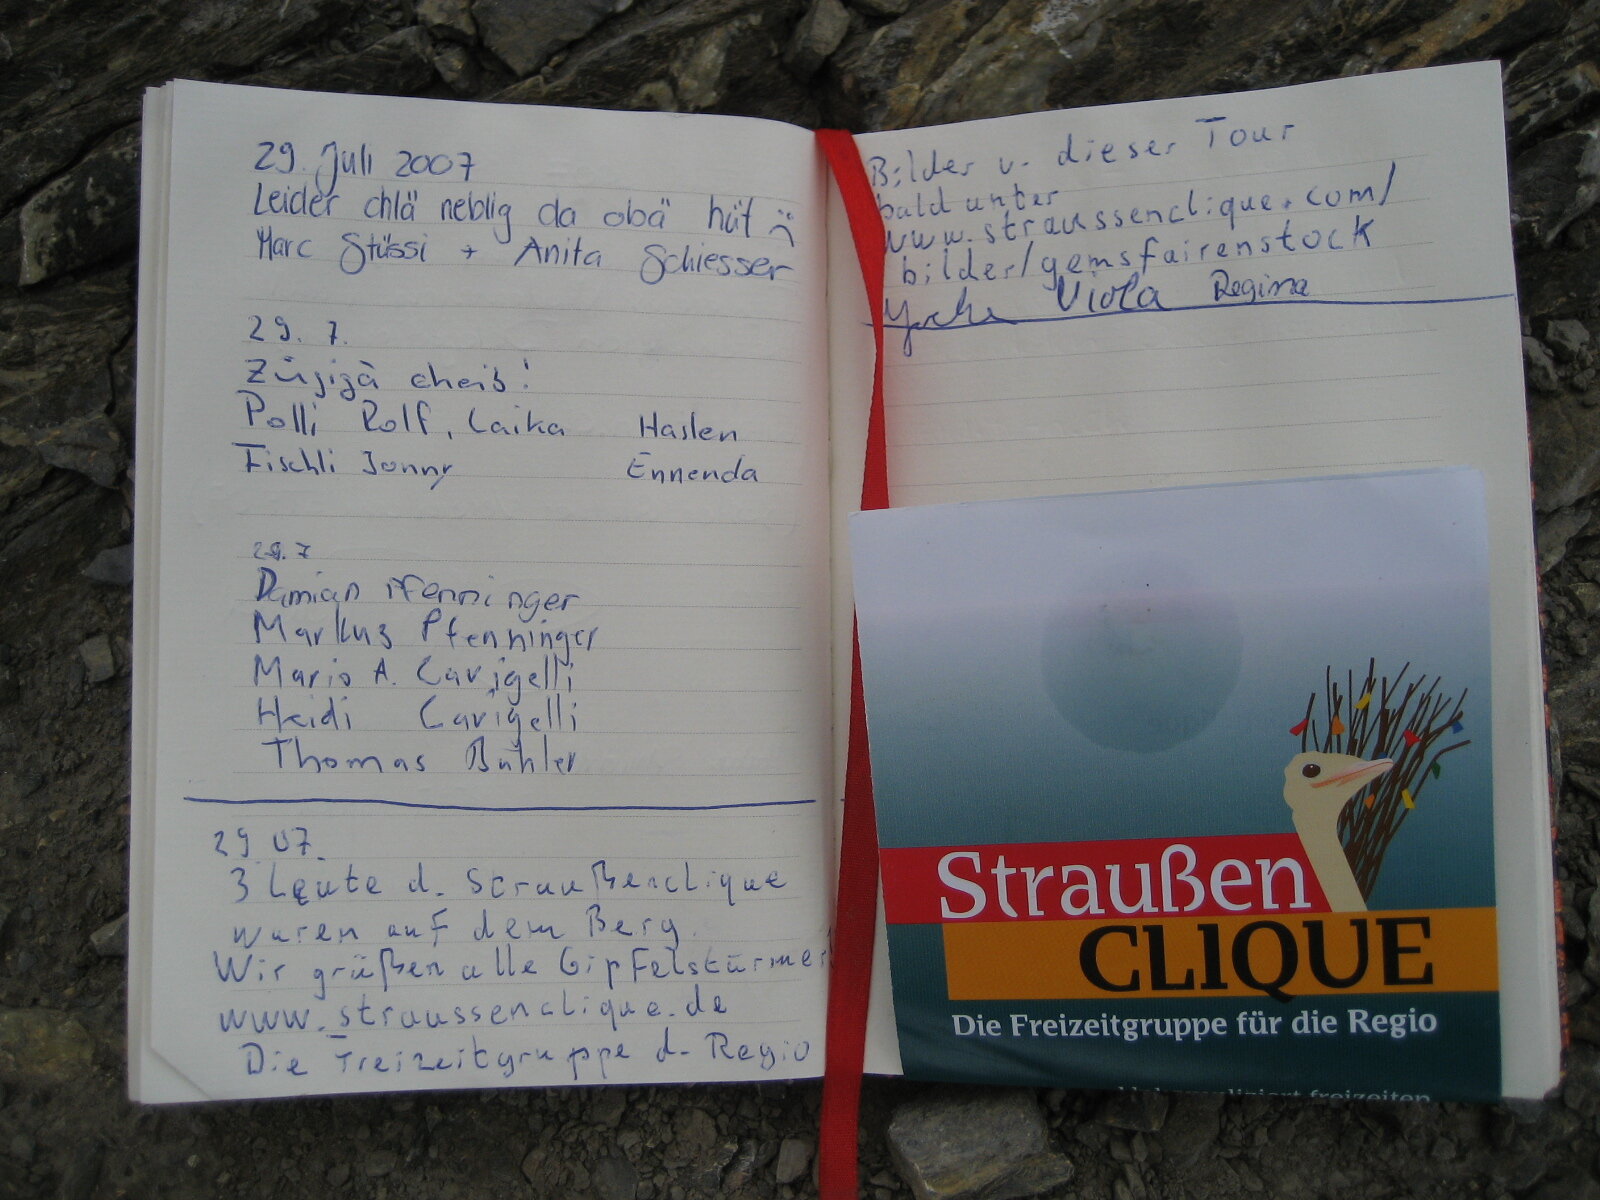 29. Juli 2007
Leider chlä neblig da obä hüt ☹
Marc Stüssi + Anita Schiesser
29. 7.
Zügigä cheib!
Polli Rolf, Laika Haslen
Fischli Jonny Ennenda
29. 7
Damian Pfenninger
Markus Pfenninger
Mario A. Cavigelli
Heidi Cavigelli
Thomas Bühler
29 07.
3 Leute d. Straußenclique
waren auf dem Berg.
Wir grüßen alle Gipfelstürmer
www.straussenclique.de
Die Freizeitgruppe d. Regio
Bilder v. dieser Tour
bald unter
www.straussenclique.com/
bilder/gemsfairenstock
Viola Regina
Straußen
CLIQUE
Die Freizeitgruppe für die Regio
freizeiten